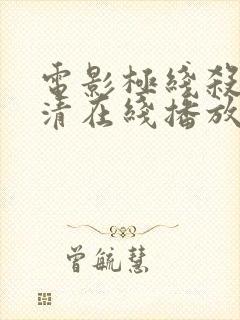 電影極綫殺
清在綫播放
曾毓慧